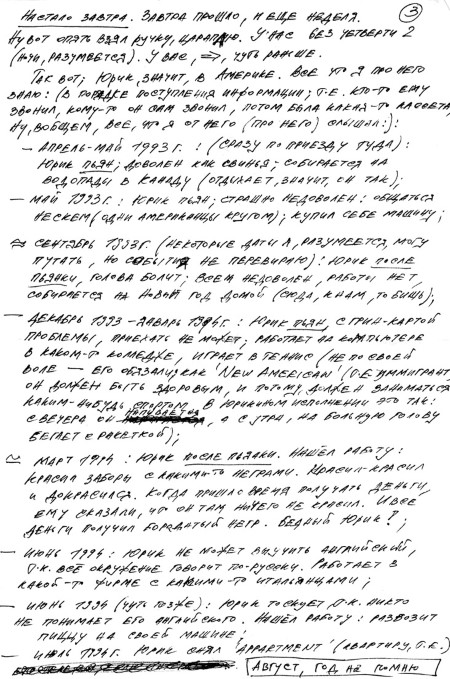 Настало завтра. Завтра прошло, и еще неделя.
3
Ну вот опять взял ручку, царапаю. У нас без четверти 2
(ночи, разумеется). У вас, =>, чуть раньше.
Так вот; Юрик, значит, в Америке. Все что я про него
знаю: (в порядке поступления информации; т.е. кто-то ему
звонил, кому-то он сам звонил, потом была какая-то кассета,
ну, вобщем, все, что я от него (про него) слышал:):
— Апрель-май 1993г. : (сразу по приезду туда):
Юрик пьян; доволен как свинья; собирается на
водопады в Канаду (отдыхает, значит, он так);
— май 1993г.: Юрик пьян; страшно недоволен: общаться
не с кем (одни американцы кругом); купил себе машину;
≈ сентябрь 1993г. (некоторые даты я, разумеется, могу
путать, но события не перевираю): Юрик после
пьянки, голова болит; всем недоволен, работы нет,
собирается на Новый год домой (сюда, к нам, то бишь);
— декабрь 1993 - январь 1994г.: Юрик пьян, с грин-картой
проблемы, приехать не может; работает на компьютере
в каком-то комедже, играет в теннис (не по своей
воле — его обязали; как 'New American' (т.е. иммигрант)
он должен быть здоровым, и потому должен заниматься
каким-нибудь спортом. В Юрикином исполнении это так:
с вечера он напивается, а с утра, на больную голову
бегает с ракеткой);
~ март 1994 : Юрик после пьянки. Нашёл работу:
красил заборы с какими-то неграми. Красил-красил
и докрасился. Когда пришло время получать деньги,
ему сказали, что он там ничего не красил. И все
деньги получил бородатый негр. Бедный Юрик!;
— июнь 1994 : Юрик не может выучить английский,
т.к. всё окружение говорит по-русски. Работает в
какой-то фирме с какими-то итальянцами;
— июнь 1994 (чуть позже): Юрик тоскует т.к. никто
не понимает его английского. Нашёл работу: развозит
пиццу на своей машине;
— июль 1994г. Юрик снял 'appartment' (квартиру, т.е.)
август, год не помню